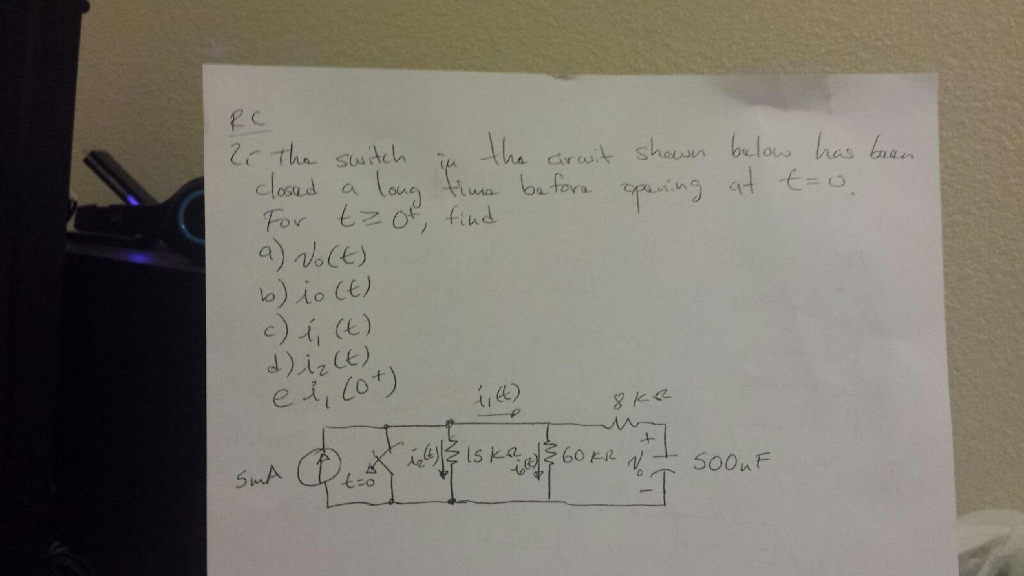 RC
2- The switch in the circuit shown below has been
closed a long time before opening at t=0.
For t≥0⁺, find
a) v₀(t)
b) i₀(t)
c) i₁(t)
d) i₂(t)
e i₁(0⁺)
i₁(t)
8 KΩ
5mA
t=0
i₂(t)
15 KΩ
i₀(t)
60 KΩ
+
v₀
-
500nF